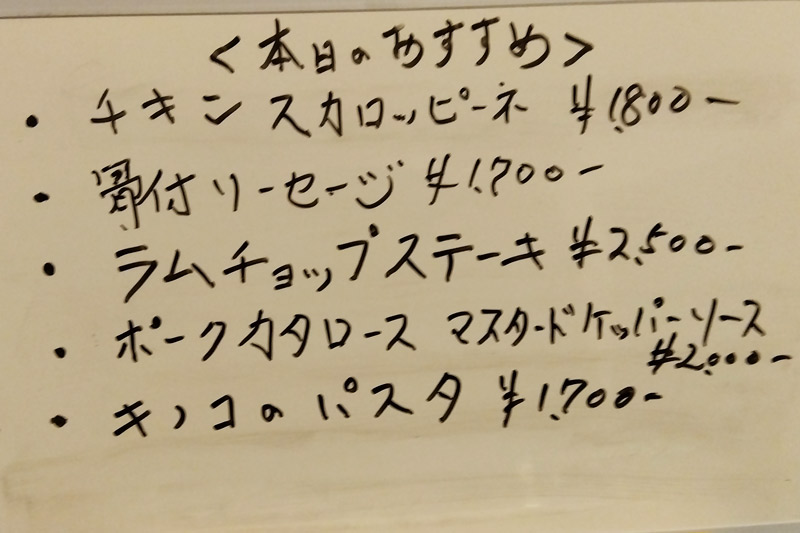 <本日のおすすめ>
・チキン スカロッピーネ ¥1,800ー
・骨付ソーセージ ¥1,700ー
・ラムチョップステーキ ¥2,500ー
・ポークカタロース マスタードケッパーソース
¥2,000ー
・キノコのパスタ ¥1,700ー